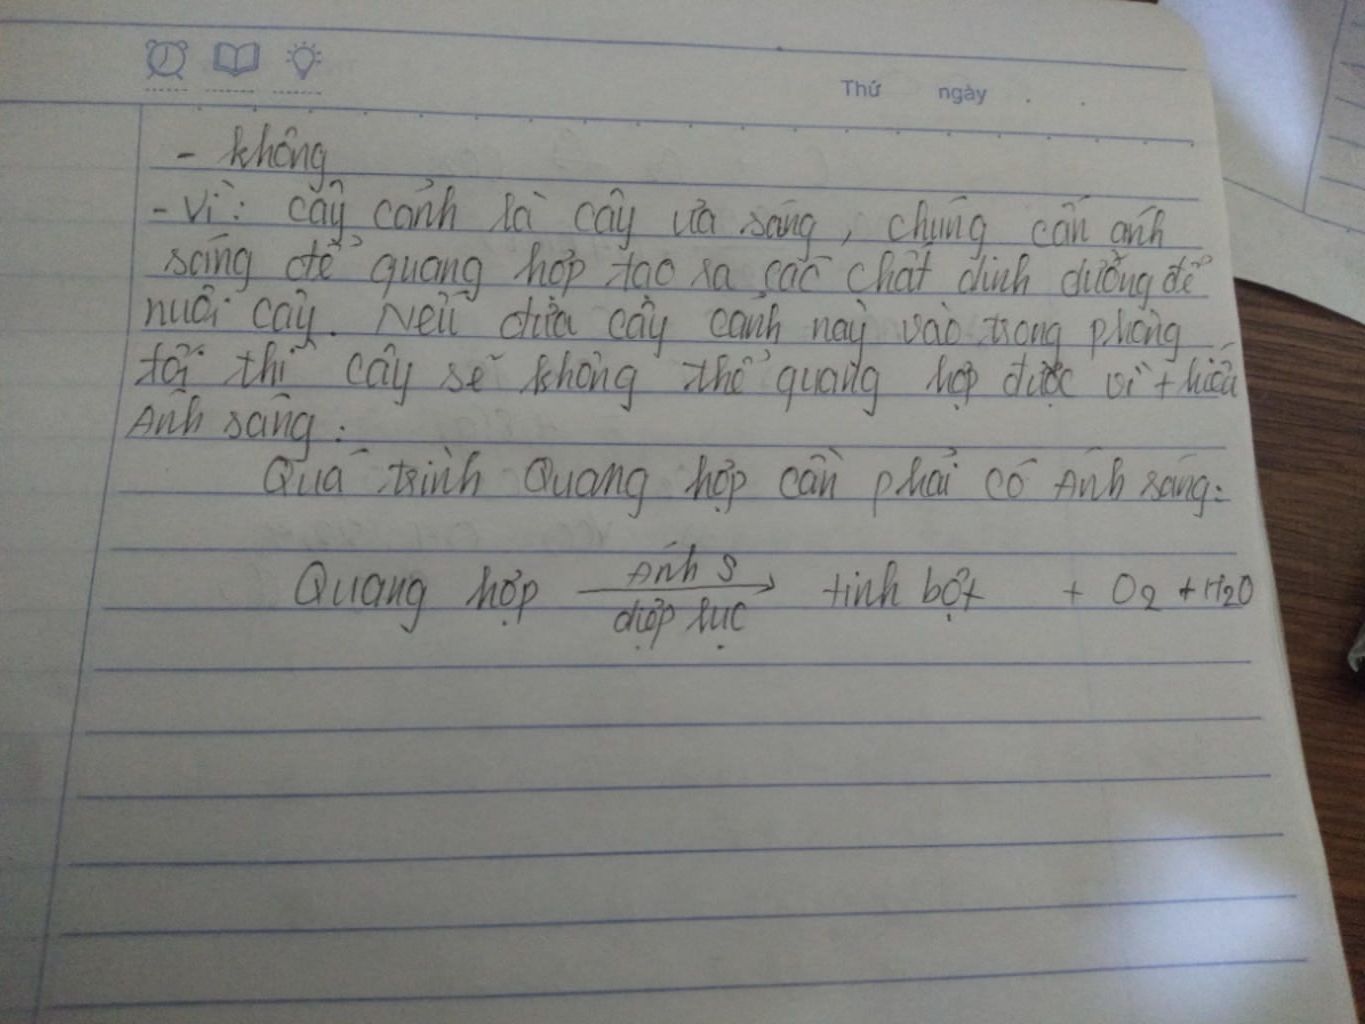 Thứ ngày
- không
- Vì: cây cảnh là cây ưa sáng, chúng cần ánh
sáng để quang hợp tạo ra các chất dinh dưỡng để
nuôi cây. Nếu đưa cây cảnh này vào trong phòng
tối thì cây sẽ không thể quang hợp được vì thiếu
Ánh sáng.
Quá trình Quang hợp cần phải có Ánh sáng:
Ánh S
Quang hợp → tinh bột + O2 + H2O
diệp lục